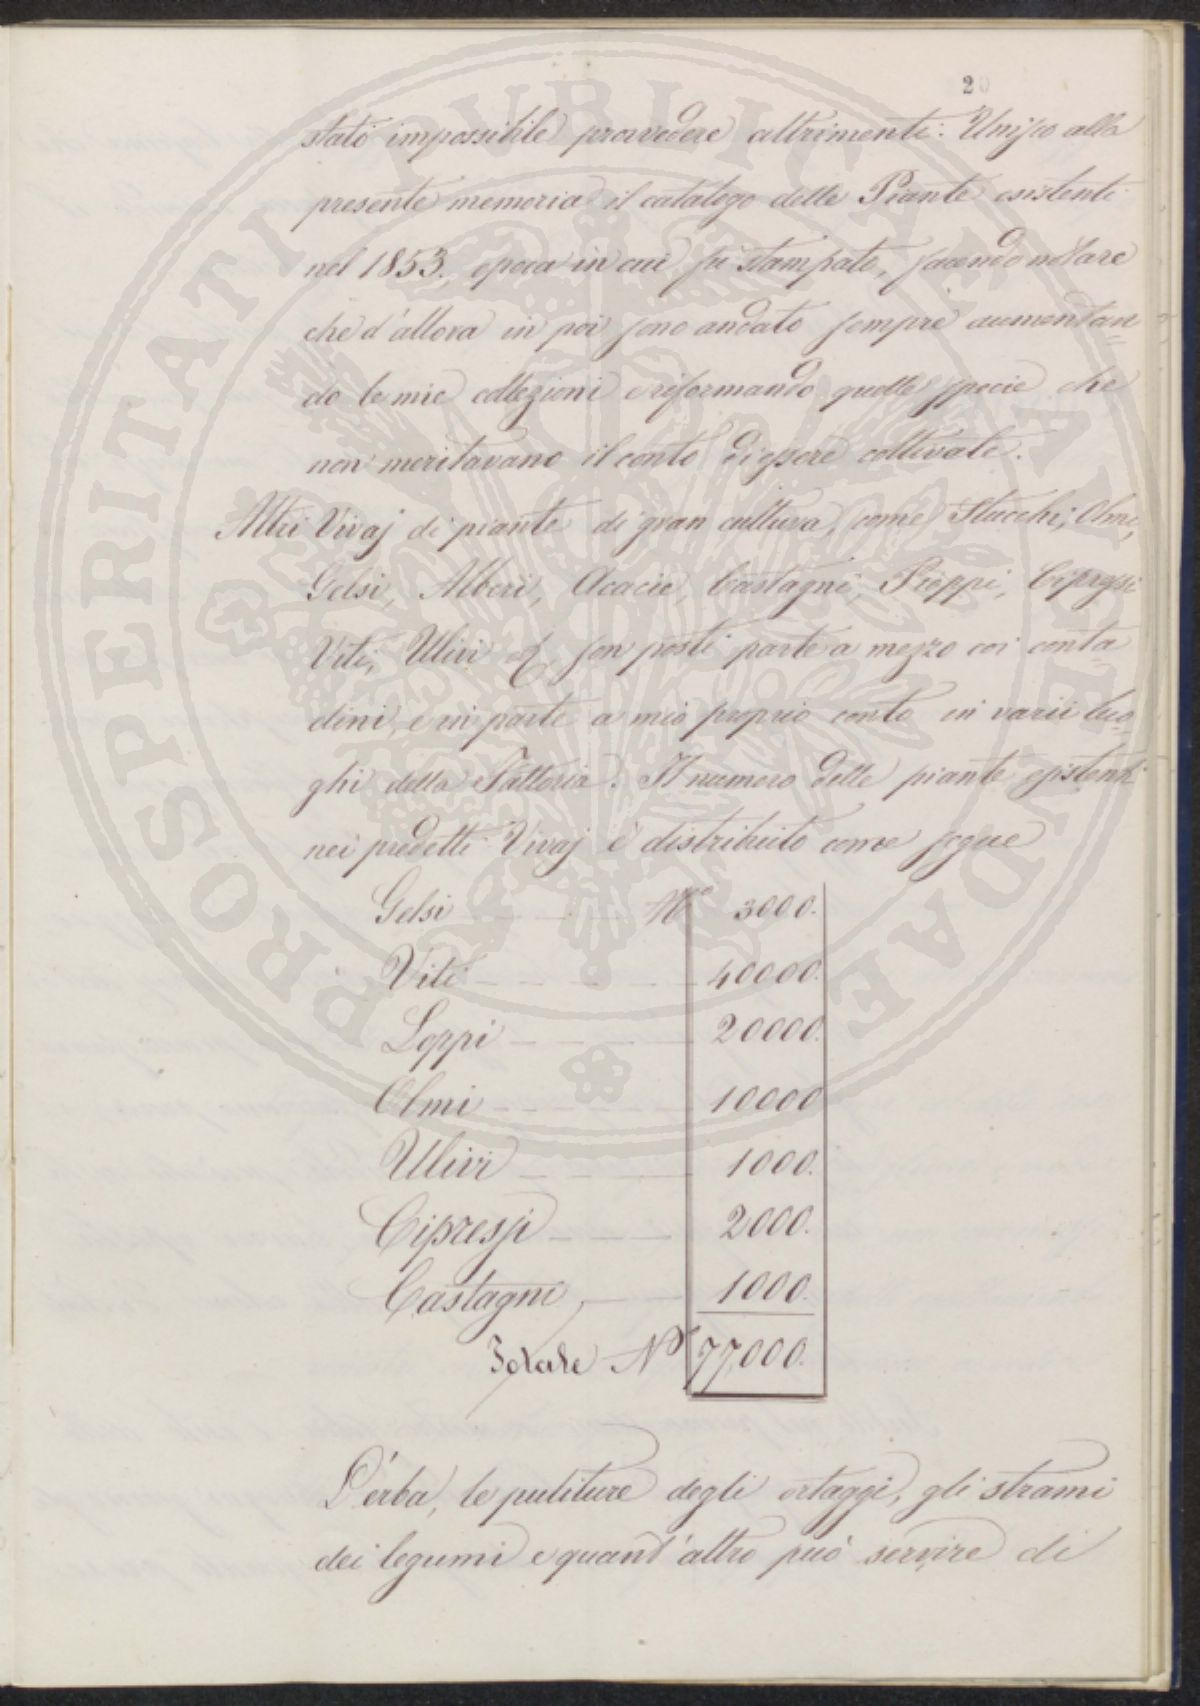 20
stato impossibile provvedere altrimenti. Unisco alla
presente memoria il catalogo delle Piante esistenti
nel 1853., epoca in cui fu stampato, facendo notare
che d'allora in poi sono andato sempre aumentan=
do le mie collezioni e riformando quelle specie che
non meritavano il conto di essere coltivate.
Altri Vivaj di piante di gran cultura, come Stucchi, Olmi,
Gelsi, Alberi, Acacie, Castagni, Pioppi, Cipressi
Viti, Ulivi &, son posti parte a mezzo coi conta=
dini, e in parte a mio proprio conto in varii luo=
ghi della Fattoria. Il numero delle piante esistenti
nei predetti Vivaj è distribuito come segue
Gelsi N.º 3000.
Viti 40000.
Loppi 20000.
Olmi 10000
Ulivi 1000.
Cipressi 2000.
Castagni, 1000.
Totale Nº 77,000.
L'erba, le puliture degli ortaggi, gli strami
dei legumi e quant'altro può servire di
PROSPERITATI PUBLICAE AUGENDAE